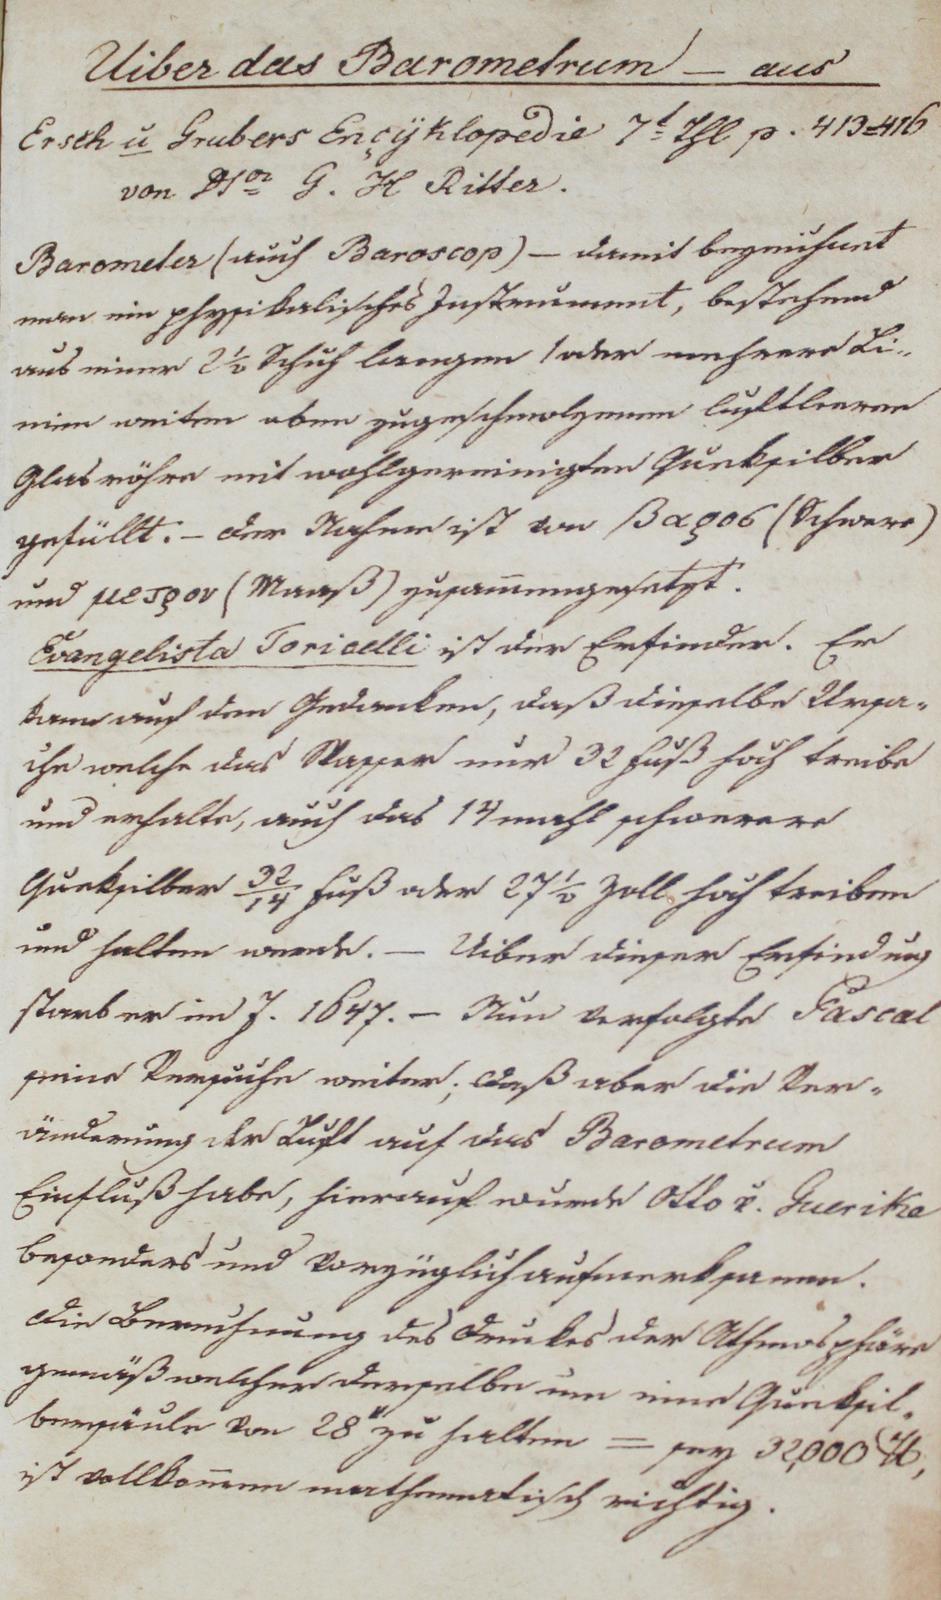 Uiber das Barometrum — aus
Ersch u Grubers Encÿklopedie 7t Thl p. 413=416
von G. H Ritter.
Barometer (auch Baroscop) — damit bezeichnet
man ein physikalisches Instrument, bestehend
aus einer 2½ Schuh langen 1 oder mehrere Li-
nien weiten oben zugeschmolzenen luftleeren
Glasröhre mit wohlgereinigten Queksilber
gefüllt. — Der Nahme ist von βαρος (Schwere)
und μετρον (Maaß) zusam̄engesetzt.
Evangelista Toricelli ist der Erfinder. Er
kam auf den Gedanken, daß dieselbe Ursa-
che welche das Wasser nur 32 Fuß hoch treibe
und erhalte, auch das 14mahl schwerere
Queksilber 32/14 Fuß oder 27½ Zoll hoch treiben
und halten werde. — Uiber dieser Erfindung
starb er im J. 1647. — Nun verfolgte Pascal
seine Versuche weiter; daß aber die Ver-
änderung der Luft auf das Barometrum
Einfluß habe, hierauf wurde Otto v. Guerike
besonders und vorzüglich aufmerksam.
Die Berechnung des Drukes der Athmosphäre
gemäß welcher derselbe um eine Queksil-
bersäule von 28" zu halten = sey 32,000 ℔,
ist vollkom̄en mathematisch richtig.